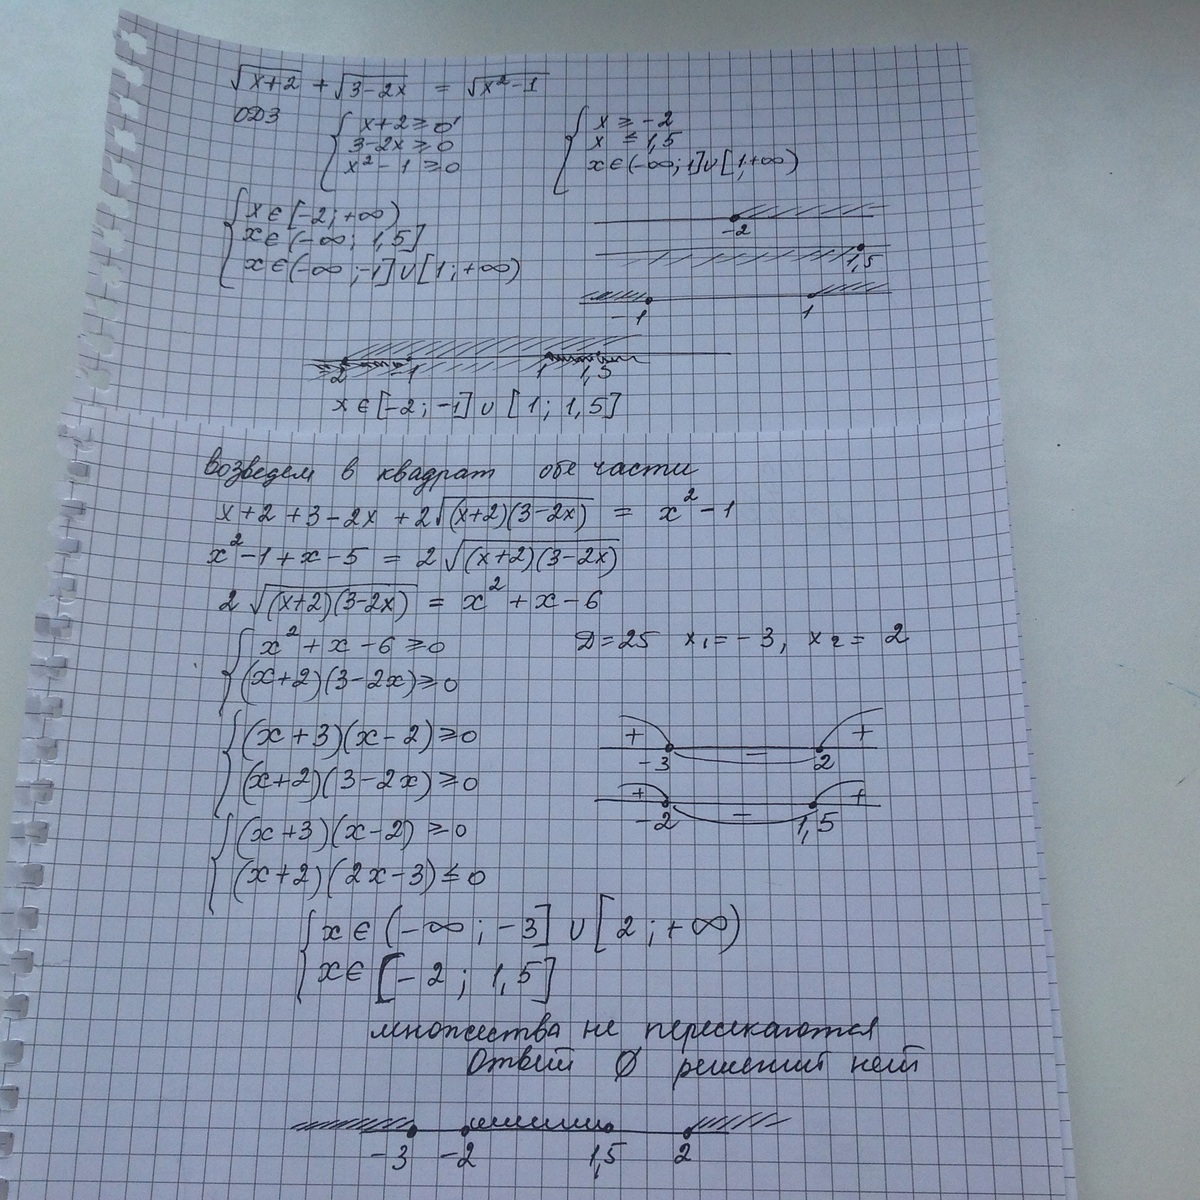 √x+2 + √3-2x = √x²-1
ОДЗ { x+2≥0 { x ≥ -2
3-2x≥0 x ≤ 1,5
x²-1≥0 x∈(-∞;1]∪[1;+∞)
{ x∈[-2;+∞)
x∈(-∞; 1,5]
x∈(-∞;-1]∪[1;+∞)
-2
1,5
-1 1
-2 -1 1 1,5
x∈[-2;-1]∪[1;1,5]
Возведем в квадрат обе части
x+2+3-2x+2√(x+2)(3-2x) = x²-1
x²-1+x-5 = 2√(x+2)(3-2x)
2√(x+2)(3-2x) = x²+x-6
{ x²+x-6≥0 D=25 x₁=-3, x₂= 2
(x+2)(3-2x)≥0
{ (x+3)(x-2)≥0 + - +
-3 2
(x+2)(3-2x)≥0 + - +
-2 1,5
{ (x+3)(x-2)≥0
(x+2)(2x-3)≤0
{ x∈(-∞;-3]∪[2;+∞)
x∈[-2; 1,5]
множества не пересекаются
Ответ ∅ решений нет
-3 -2 1,5 2